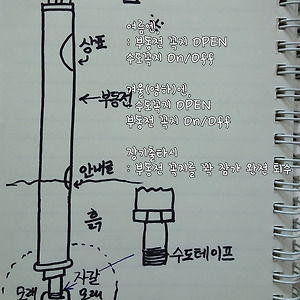 여름엔
: 부동전 꼭지 OPEN
수도꼭지 On/Off
상표
겨울(영하)엔,
수도꼭지 OPEN
부동전 꼭지 On/Off
부동전
장기출타시
: 부동전 꼭지를 꼭 잠가 완전 퇴수
안내글
흙
수도테이프
자갈
모래
모래